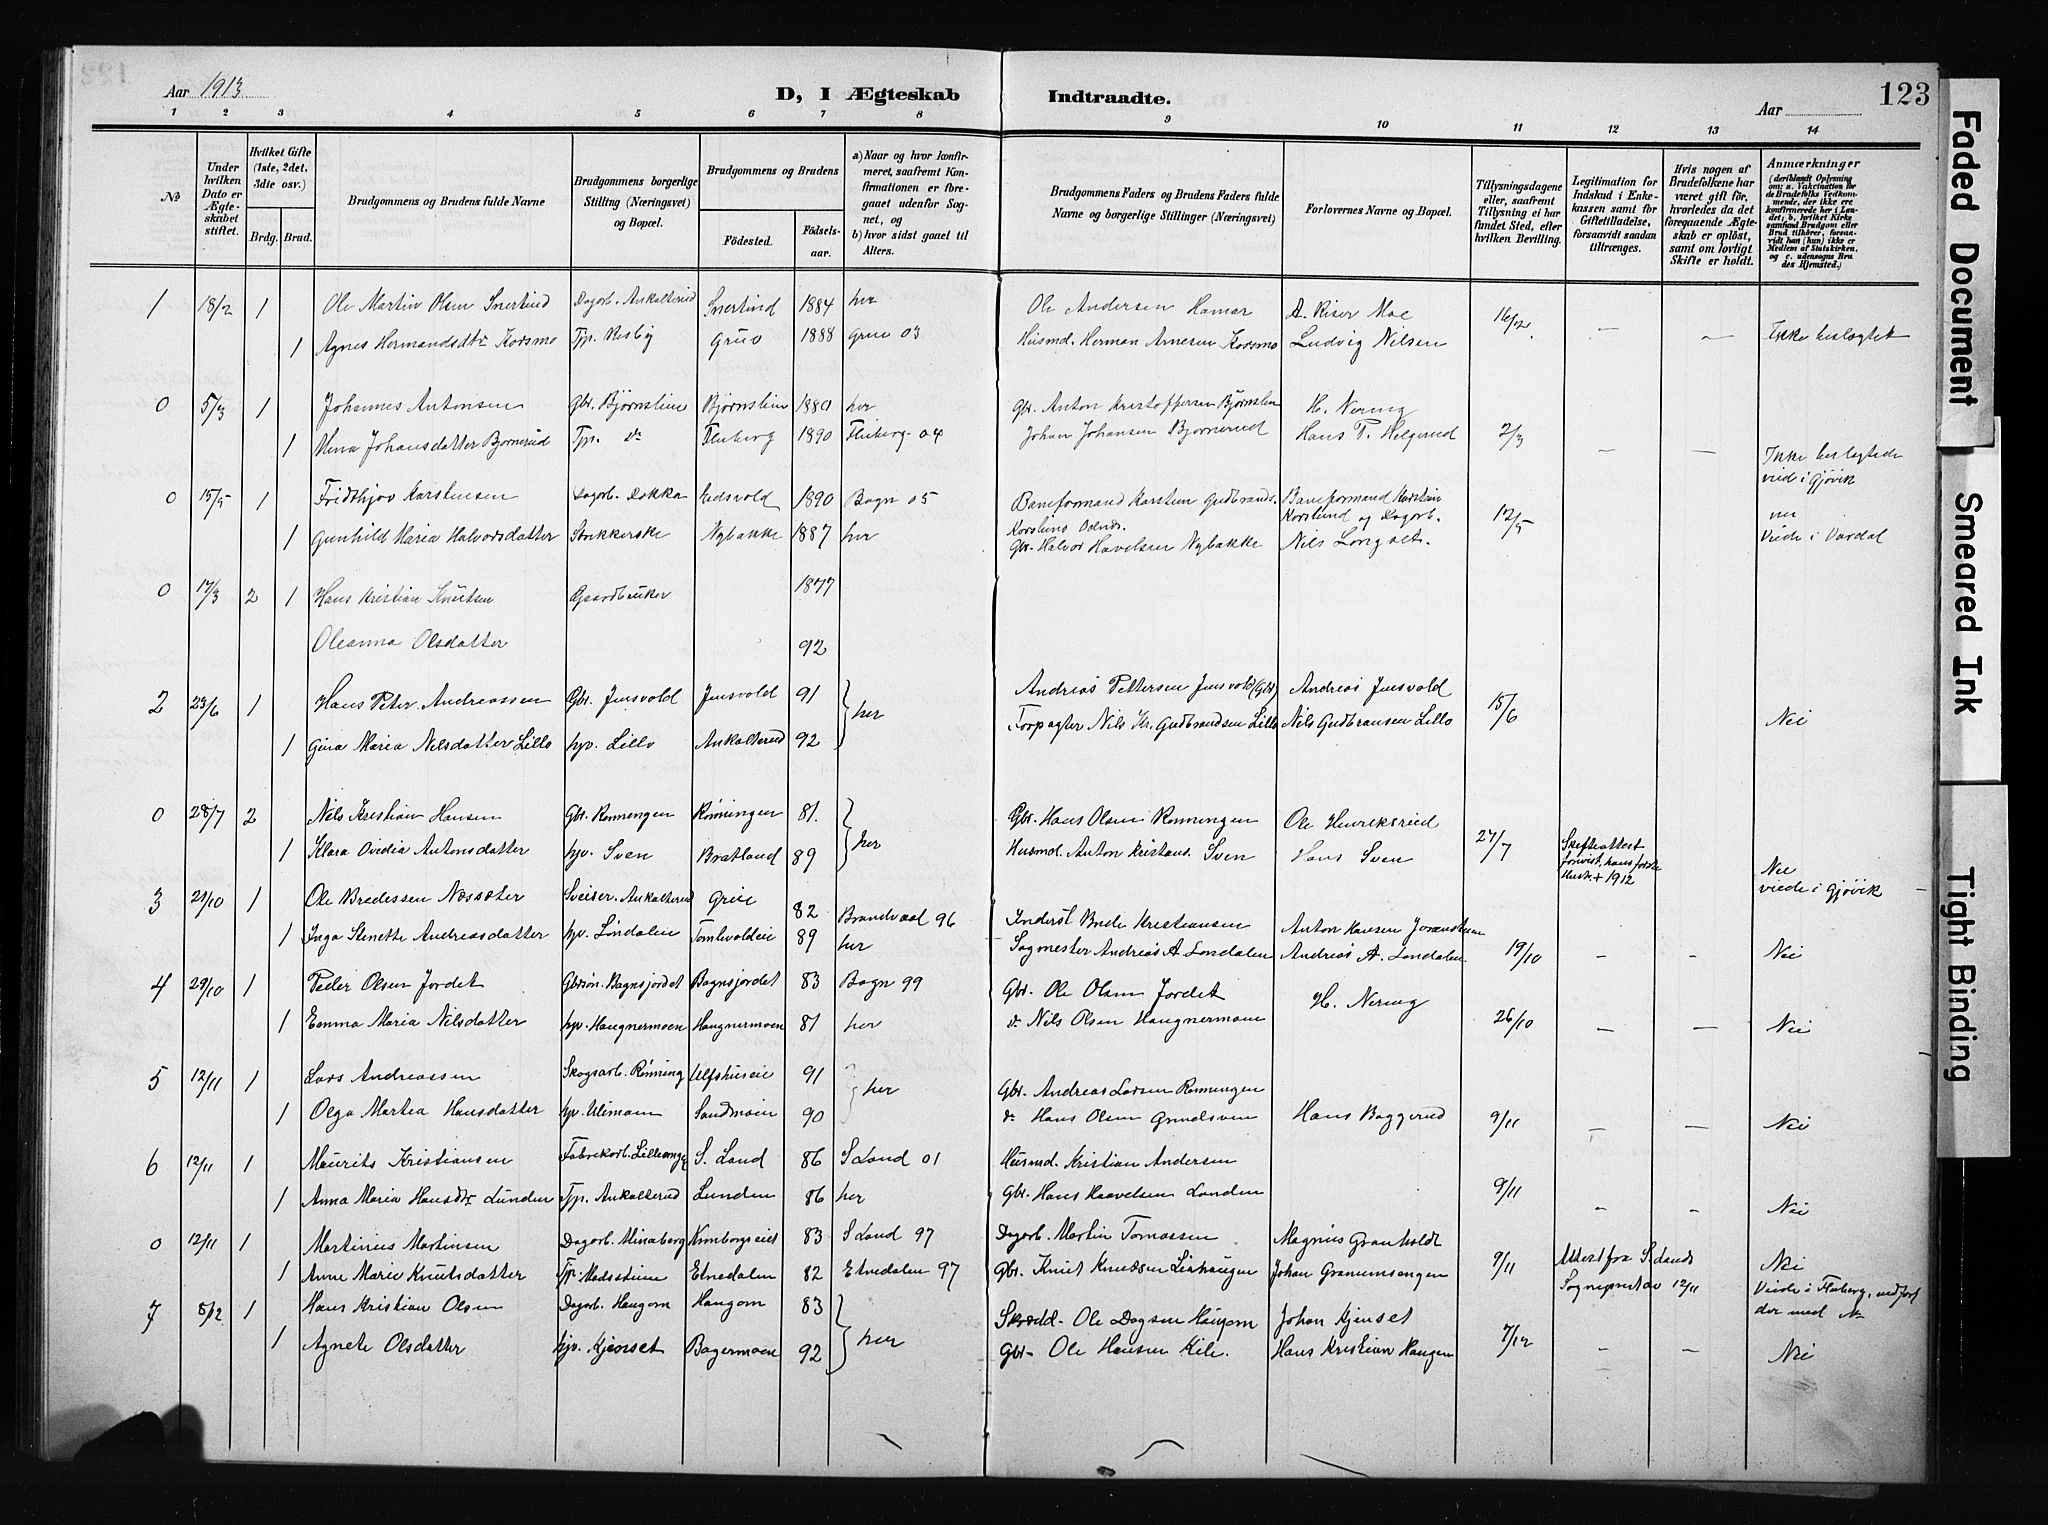 123
Aar 1913
D, I Ægteskab Indtraadte.
Aar
1 2 3 4 5 6 7 8 9 10 11 12 13 14
No
Under hvilken Dato er Ægteskabet stiftet.
Hvilket Gifte (1ste, 2det, 3die osv.)
Brdg. Brud.
Brudgommens og Brudens fulde Navne
Brudgommens borgerlige Stilling (Næringsvei) og Bopæl.
Brudgommens og Brudens
Födested.
Födselsaar.
a) Naar og hvor konfirmeret, saafremt Konfirmationen er foregaaet udenfor Sognet, og
b) hvor sidst gaaet til Alters.
Brudgommens Faders og Brudens Faders fulde Navne og borgerlige Stillinger (Næringsvei)
Forlovernes Navne og Bopæl.
Tillysningsdagene eller, saafremt Tillysning ei har fundet Sted, efter hvilken Bevilling.
Legitimation for Indskud i Enkekassen samt for Giftetilladelse, forsaavidt saadan tiltrænges.
Hvis nogen af Brudefolkene har været gift før, hvorledes da det foregaaende Ægteskab er opløst, samt om lovligt Skifte er holdt.
Anmærkninger
(deriblandt Oplysning om: a. Vakcination for de Brudefolks Vedkommende, der ikke ere konfirmerede her i Landet; b. hvilket Kirkesamfund Brudgom eller Brud tilhører, forsaavidt han (hun) ikke er Medlem af Statskirken, og c. udensogns Brudes Hjemsted.)
1 18/2 1 Ole Martin Olsen Snertind Dagarb. Ankalterud Snertind 1884 her Ole Andersen Hamar A. Riser Moe 16/2 — —
1 Agnes Hermandsdtr Korsmo Tjp. Risby Grue 1888 Grue 03 Husmd. Herman Arnesen Korsmo Ludvig Nilsen Ikke beslægtet
0 5/3 1 Johannes Antonsen Gbr. Bjørnslien Bjørnslien 1880 her Gbr. Anton Kristoffersen Bjørnslien H. Nering 2/3 — —
1 Johansdatter Bjørnerud Tjp. do Fluberg 1890 Fluberg 04 Johan Johansen Bjørnerud Hans T. Helgerud Ikke beslegtede viede i Gjøvik
0 15/5 1 Fridthjov Karstensen Dagarb. Dokka Eidsvold 1890 Bagn 05 Baneformand Karsten Gudbrands. Baneformand Karsten
Korslund og Dagarb. 12/5
1 Gunhild Maria Halvorsdatter Strikkerske Nybakke 1887 her Gbr. Halvor Havelsen Nybakke Nils Viede i Vardal
0 17/3 2 1 Hans Kristian Knutsen Gaardbruker 1877
Oleanna Olsdatter 92
2 23/6 1 Hans Peter Andreassen Gbr. Jensvold Jensvold 91 } her Andreas Pettersen Jensvold (Gbr) Andreas Jensvold 15/6
1 Gina Maria Nilsdatter Lillo hjv. Lillo Ankalterud 92 Forpagter Nils Kr. Gudbrandsen Lillo Nils Gudbransen Lillo Nei
0 28/7 2 Nils Kristian Hansen Gbr. Rønningen Rønningen 81. } her Gbr. Hans Olsen Rønningen Ole Henriksrud 27/7 Skifteattest
1 Klara Ovedia Antonsdatter hjv. Sven Bratland 89 Husmd. Anton Kristians. Sven Hans Sven forvist, hans første Hustr. + 1912 Nei viede i Gjøvik
3 21/10 1 Ole Bredessen Næssæter Sveiser. Ankalterud Grue 82 Brandvaal 96 Inderst Brede Kristiansen Anton Hansen
1 Inga Stenette Andreasdatter hjv. Lóndalen Tomlevoldeie 89 her Sagmester Andreas A Londalen Andreas A. Londalen 19/10 - - Nei
4 29/10 1 Peder Olsen Jordet Gbrsøn. Bagnsjordet Bagnsjordet 83 Bagn 99 Gbr. Ole Olsen Jordet H. Nering
1 Emma Maria Nilsdatter hjv. Haugnermoen Haugnermoen 81 her do Nils Olsen Haugnermoen 26/10 — — Nei
5 12/11 1 Lars Andreassen Skogsarb. Rønning Ulfshuseie 91 } her Gbr. Andreas Larsen Rønningen
1 Olga Martea Hansdatter hjv. Ulimoen Sandmoen 90 do Hans Olsen Grindsven Hans Baggerud 9/11 — — Nei
6 12/11 1 Maurits Kristiansen Fabrikarb. Lilleenge S. Land 86 S Land 01 Husmd. Kristian Andersen
1 Anna Maria Hansdtr Lunden Tjp. Ankalterud Lunden 86 her Gbr. Hans Haavelsen Londen 9/11 - - Nei
0 12/11 1 Martinius Martinsen Dagarb. Minaberg 83 S Land 97 Dagarb. Martin Tomassen Magnus Granholdt
1 Anne Marie Knutsdatter Tjp. Madsstuen Etnedalen 82 Etnedalen 97 Gbr. Knut Knudsen Linhaugen Johan Granumsengen 9/11 Attest fra S. Lands Sogneprest av 12/11 Nei
7 8/12 1 Hans Kristian Olsen Dagarb. Haugom Haugom 83 } her Skredd. Ole Dagsen Haugom Johan Kjenset Viede i Fluberg, indført der med No
1 Agnete Olsdatter hjv. Kjenset Bagermoen 92 Gbr. Ole Hansen Kile. Hans Kristian Haugen 7/12 - - Nei
Faded Document
Smeared Ink
Tight Binding